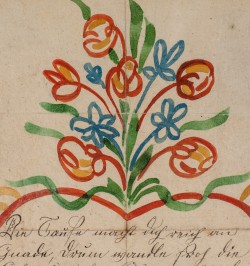 Die Taufe macht dich reich an
Gnade, drum wandle froh die